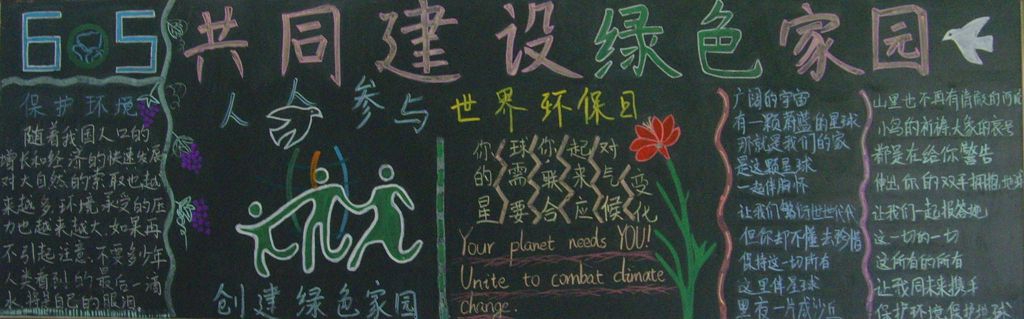 605
共同建设绿色家园
人人参与
世界环保日
保护环境
随着我国人口的
增长和经济的快速发展
对大自然的索取也越
来越多.环境承受的压
力也越来越大.如果再
不引起注意.不要多少年
人类看到的最后一滴
水将是自己的眼泪.
创建绿色家园
你的星球需要你联合起来应对气候变化
Your planet needs YOU!
Unite to combat climate
change.
广阔的宇宙
有一颗蔚蓝的星球
那就是我们的家
是这颗星球
一起伴
让我们繁衍世世代代
但你却不懂去珍惜
保持这一切所有
这里伴星球
黑夜一片成沙丘
山里也不再有清澈的河
小鸟的祈祷大象的哀
都是在给你警告
伸出你的双手拥抱地球
让我们一起报答她
这一切的一切
这所有的所有
让我同未来携手
保护环境保护地球